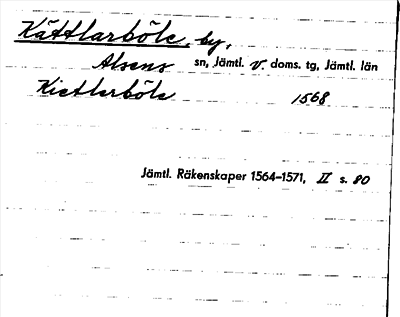 Kättlarböle, by,
Alsens sn, Jämtl. v. doms. tg, Jämtl. län
Kietlerböle 1568
Jämtl. Räkenskaper 1564–1571, II s. 80